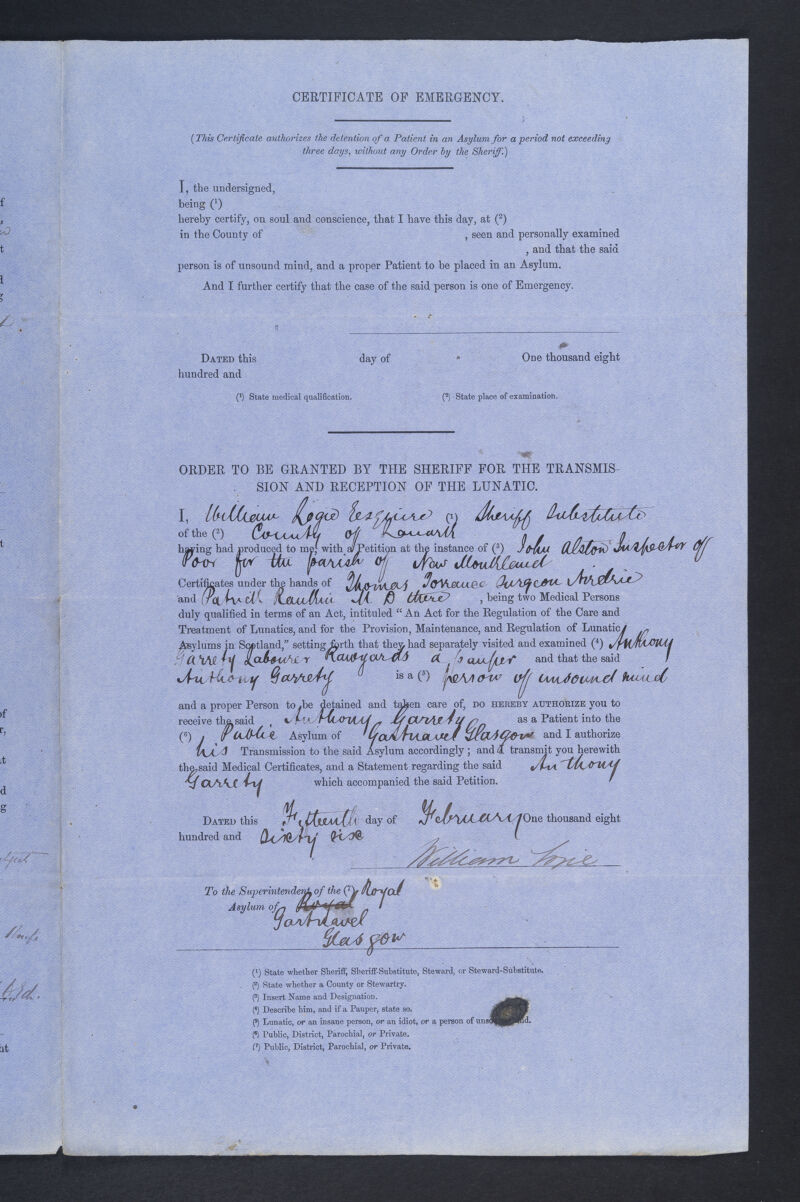 CERTIFICATE OF EMERGENCY.
(This Certificate authorizes the detention of a Patient in an Asylum for a period not exceeding
three days, without any Order by the Sheriff.)
I, the undersigned,
being (¹)
hereby certify, on soul and conscience, that I have this day, at (²)
in the County of , seen and personally examined
, and that the said
person is of unsound mind, and a proper Patient to be placed in an Asylum.
And I further certify that the case of the said person is one of Emergency.
DATED this day of One thousand eight
hundred and
(¹) State medical qualification. (²) State place of examination.
ORDER TO BE GRANTED BY THE SHERIFF FOR THE TRANSMIS-
SION AND RECEPTION OF THE LUNATIC.
I, William Logie Esquire (¹) Sheriff Substitute
of the (²) County of Lanark
having had produced to me, with a Petition at the instance of (³) John Alston Inspector of
Poor for the parish of New Monkland
Certificates under the hands of Thomas Torrance Surgeon Airdrie
and Patrick Rankin M. D there , being two Medical Persons
duly qualified in terms of an Act, intituled “An Act for the Regulation of the Care and
Treatment of Lunatics, and for the Provision, Maintenance, and Regulation of Lunatic
Asylums in Scotland,” setting forth that they had separately visited and examined (⁴) Anthony
Garrety Labourer Rawyards a pauper and that the said
Anthony Garrety is a (⁵) person of unsound mind
and a proper Person to be detained and taken care of, DO HEREBY AUTHORIZE you to
receive the said Anthony Garrety as a Patient into the
(⁶) Public Asylum of Gartnavel Glasgow and I authorize
his Transmission to the said Asylum accordingly ; and I transmit you herewith
the said Medical Certificates, and a Statement regarding the said Anthony
Garrety which accompanied the said Petition.
DATED this Fifteenth day of February One thousand eight
hundred and Sixty six
William Logie
To the Superintendent of the (⁷) Royal
Asylum of Royal
Gartnavel
Glasgow
(¹) State whether Sheriff, Sheriff-Substitute, Steward, or Steward-Substitute.
(²) State whether a County or Stewartry.
(³) Insert Name and Designation.
(⁴) Describe him, and if a Pauper, state so.
(⁵) Lunatic, or an insane person, or an idiot, or a person of
(⁶) Public, District, Parochial, or Private.
(⁷) Public, District, Parochial, or Private.